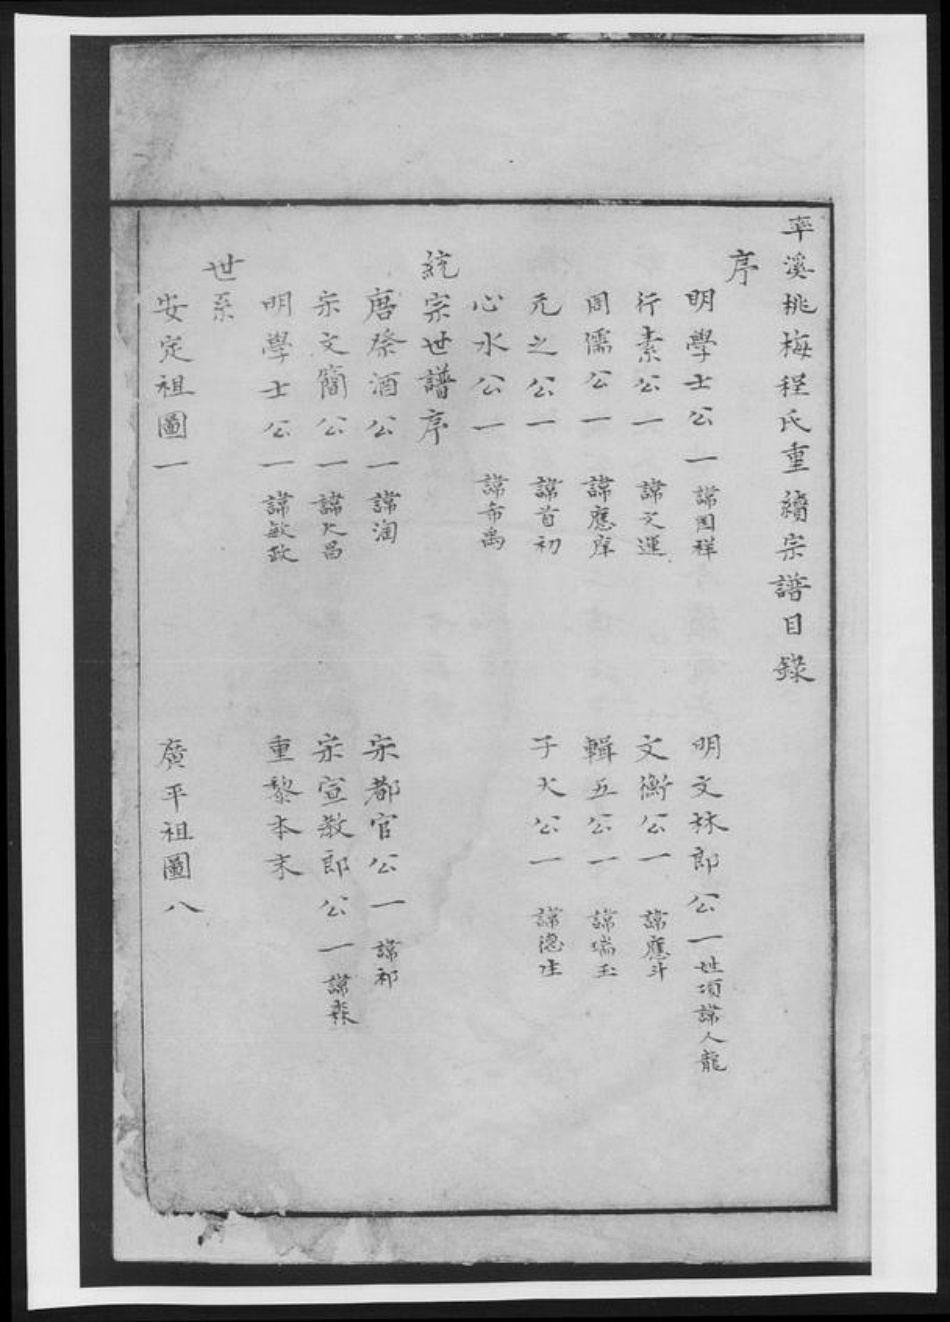 率溪桃梅程氏重續宗譜目錄
序
明學士公一 諱國祥 明文林郎公一 姓項諱人龍
行素公一 諱文運 文衡公一 諱應斗
聞儒公一 諱應庠 輯五公一 諱瑞玉
元之公一 諱首初 子大公一 諱德生
心水公一 諱希禹
統宗世譜序
唐祭酒公一 諱淘 宋都官公一 諱祁
宋文簡公一 諱大昌 宋宣教郎公一 諱森
明學士公一 諱敏政 重黎本末
世系
安定祖圖一 廣平祖圖八